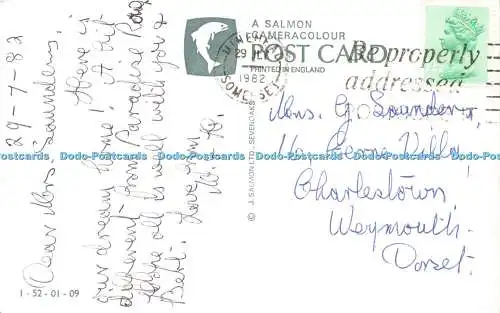 29-7-82
Dear Mrs Saunders,
Here is
our dream home! A bit
different from Paradise Road
Hope all is well with you &
Love from
A SALMON
CAMERACOLOUR
POST CARD
PRINTED IN ENGLAND
MINEHEAD
29 JLY
1982
SOMERSET
Be properly
addressed
Mrs. G. Saunders,
16 George Villa,
Charlestown,
Weymouth.
Dorset.
© J. SALMON LTD., SEVENOAKS
1-52-01-09
Dodo-Postcards Dodo-Postcards Dodo-Postcards Dodo-Postcards Dodo-Postcards Dodo-Postcards Dodo-Postcards